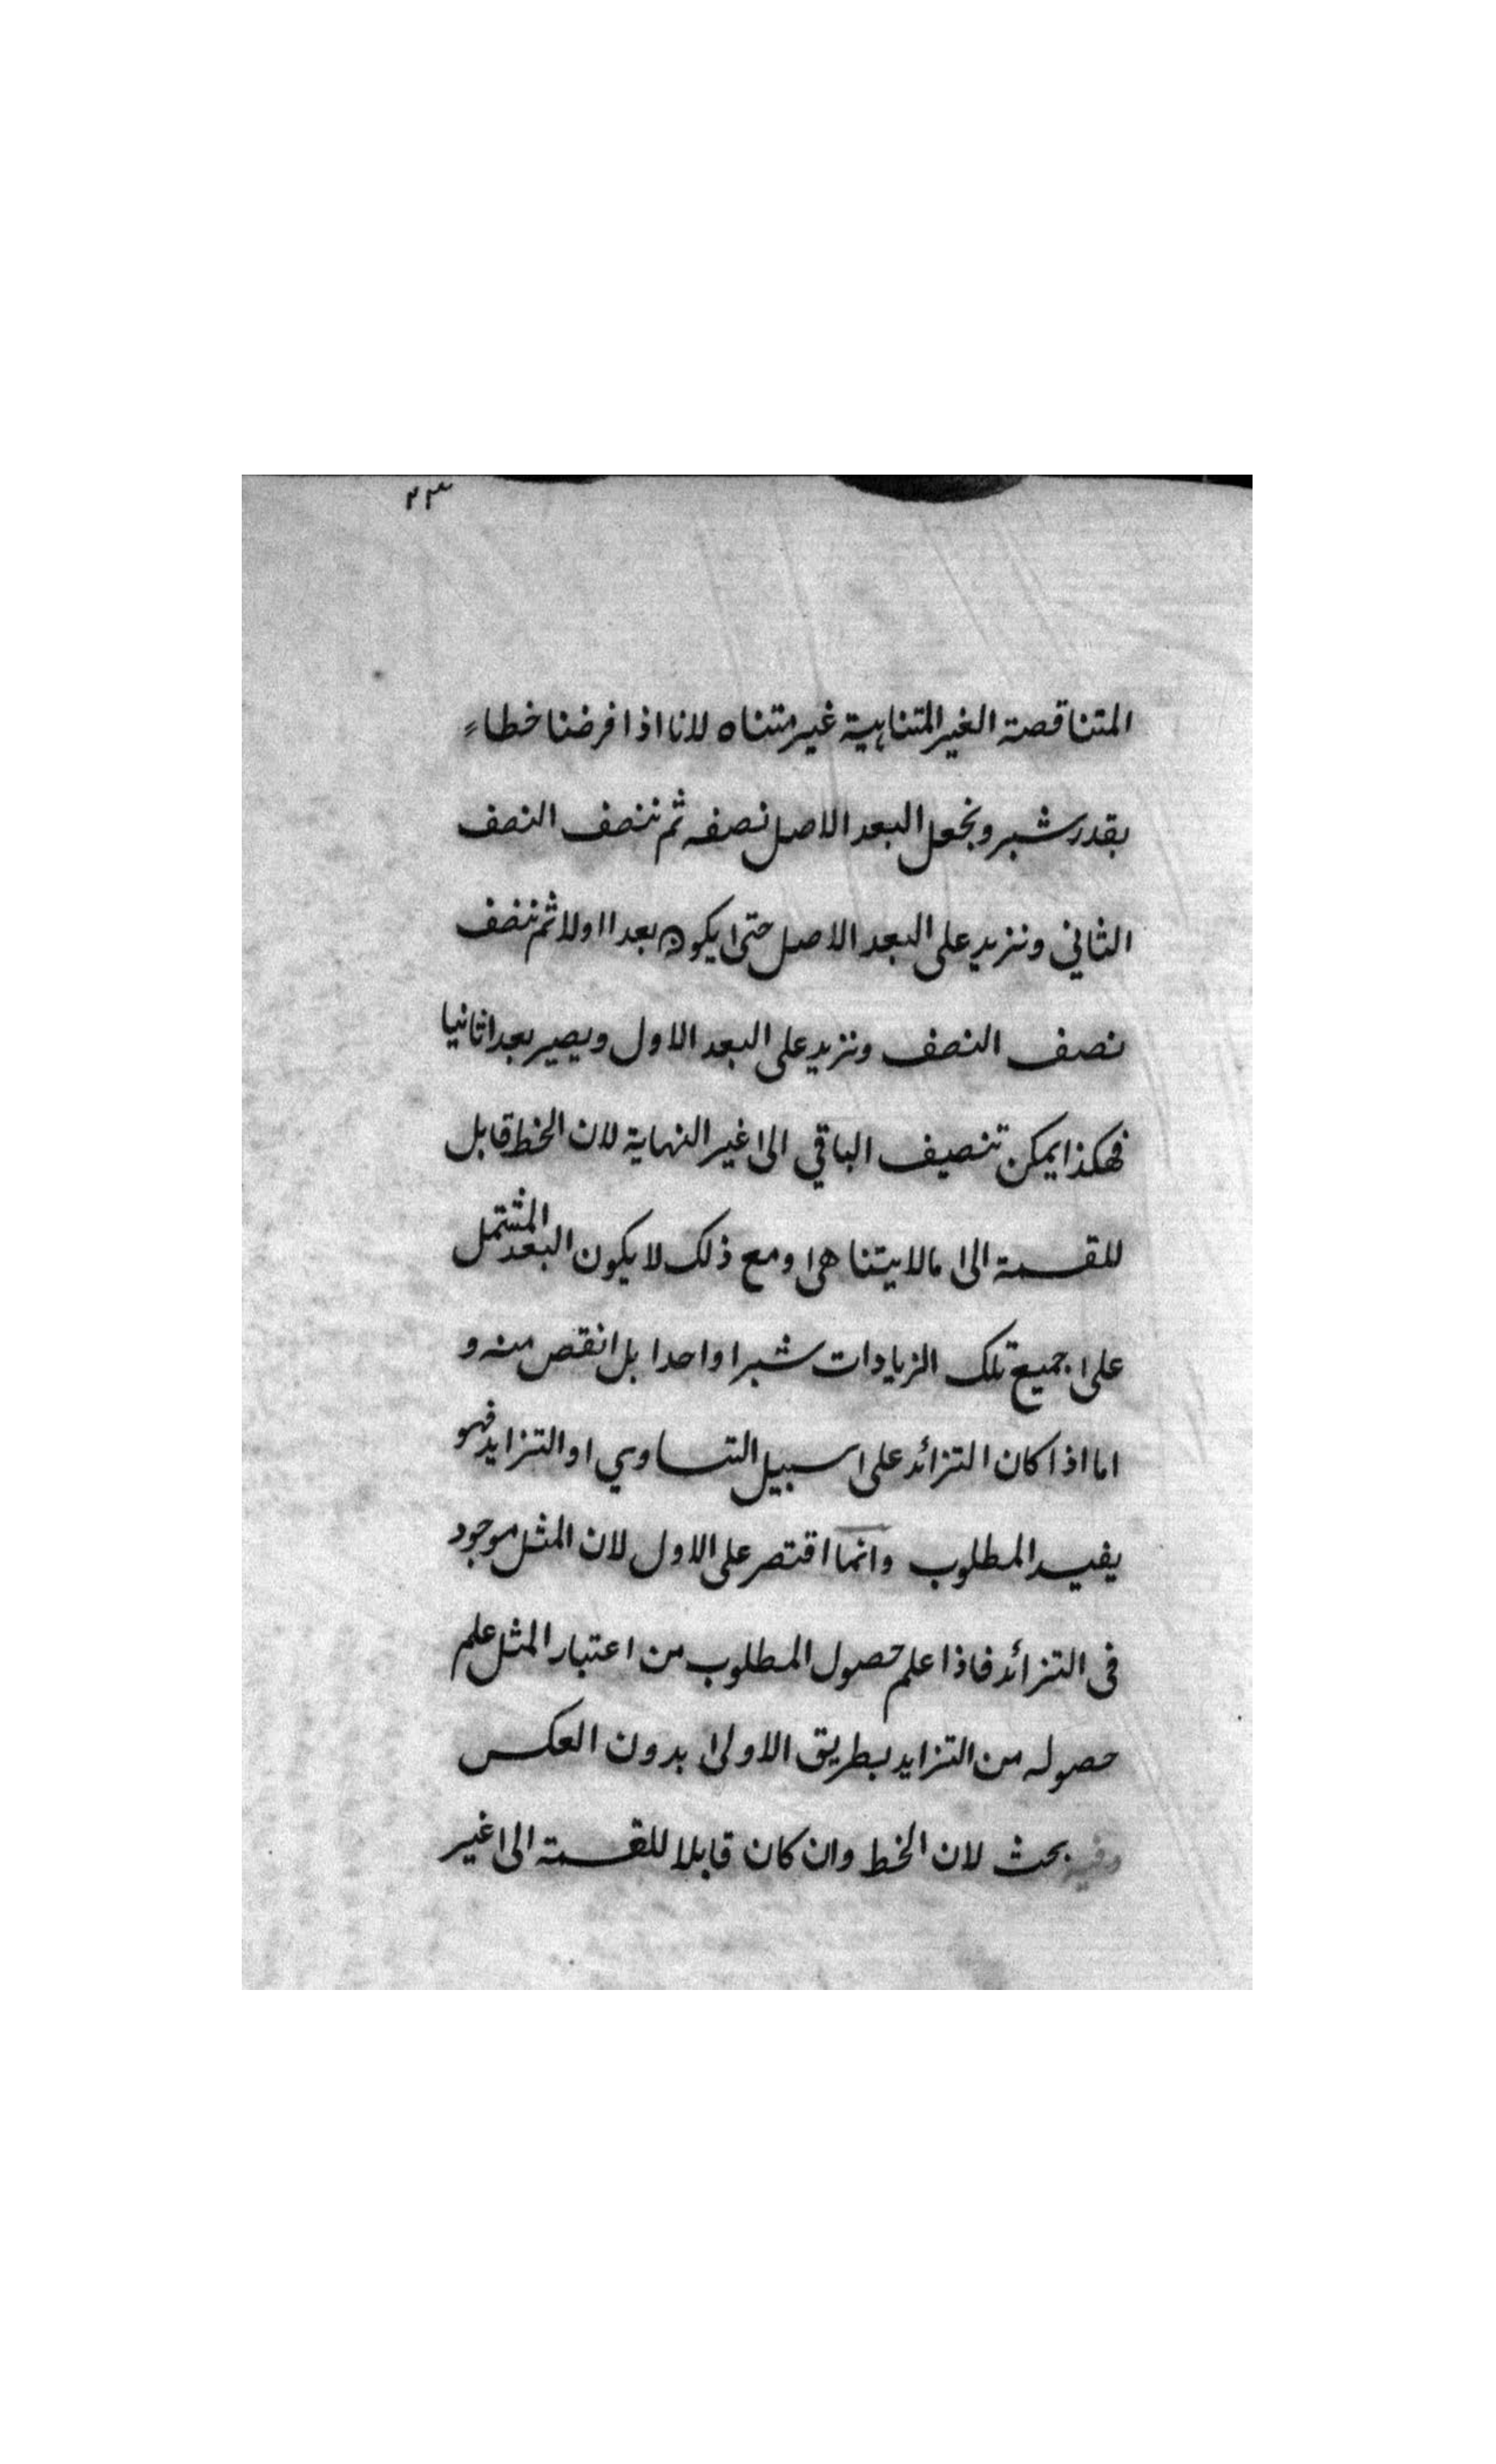 ٢٣
المتناقصة الغير المتناهية غير متناه لانا اذا فرضنا خطا
بقدر شبر ونجعل البعد الاصل نصفه ثم ننصف النصف
الثاني ونزيد على البعد الاصل حتى يكون بعدا اولا ثم ننصف
نصف النصف ونزيد على البعد الاول ويصير بعدا ثانيا
فهكذا يمكن تنصيف الباقي الى غير النهاية لان الخط قابل
للقسمة الى مالا يتناهى ومع ذلك لا يكون البعد المشتمل
على جميع تلك الزيادات شبرا واحدا بل انقص منه و
اما اذا كان التزائد على سبيل التساوي او التزايد فهو
يفيد المطلوب وانما اقتصر على الاول لان المثل موجود
فى التزائد فاذا علم حصول المطلوب من اعتبار المثل علم
حصوله من التزايد بطريق الاولى بدون العكس
وفيه بحث لان الخط وان كان قابلا للقسمة الى غير